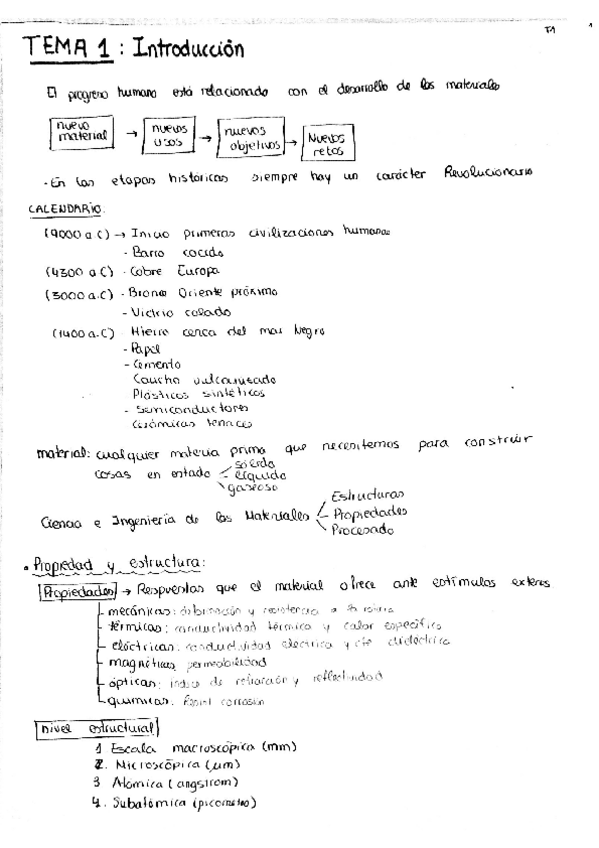 T1
TEMA 1: Introducción
El progreso humano está relacionado con el desarrollo de los materiales
nuevo material → nuevos usos → nuevos objetivos → Nuevos retos
- En las etapas históricas siempre hay un carácter Revolucionario
CALENDARIO:
(9000 a C) → Inicio primeras civilizaciones humanas
- Barro cocido
(4300 a C) - Cobre Europa
(3000 a.C) - Bronce Oriente próximo
- Vidrio colado
(1400 a.C) - Hierro cerca del mar Negro
- Papel
- Cemento
Caucho vulcanizado
Plásticos sintéticos
- Semiconductores
Cerámicas
material: cualquier materia prima que necesitemos para construir
cosas en estado
sólido
líquido
gaseoso
Ciencia e Ingeniería de los Materiales
Estructuras
Propiedades
Procesado
• Propiedad y estructura:
Propiedades → Respuestas que el material ofrece ante estímulos
mecánicas: deformación y resistencia a
térmicas: conductividad térmica y calor específico
eléctricas: conductividad eléctrica y cte dieléctrica
magnéticas permeabilidad
ópticas: índice de refracción y reflectividad
químicas: corrosión
nivel estructural
1 Escala macroscópica (mm)
2. Microscópica (μm)
3 Atómica (angstrom)
4. Subatómica (picometro)